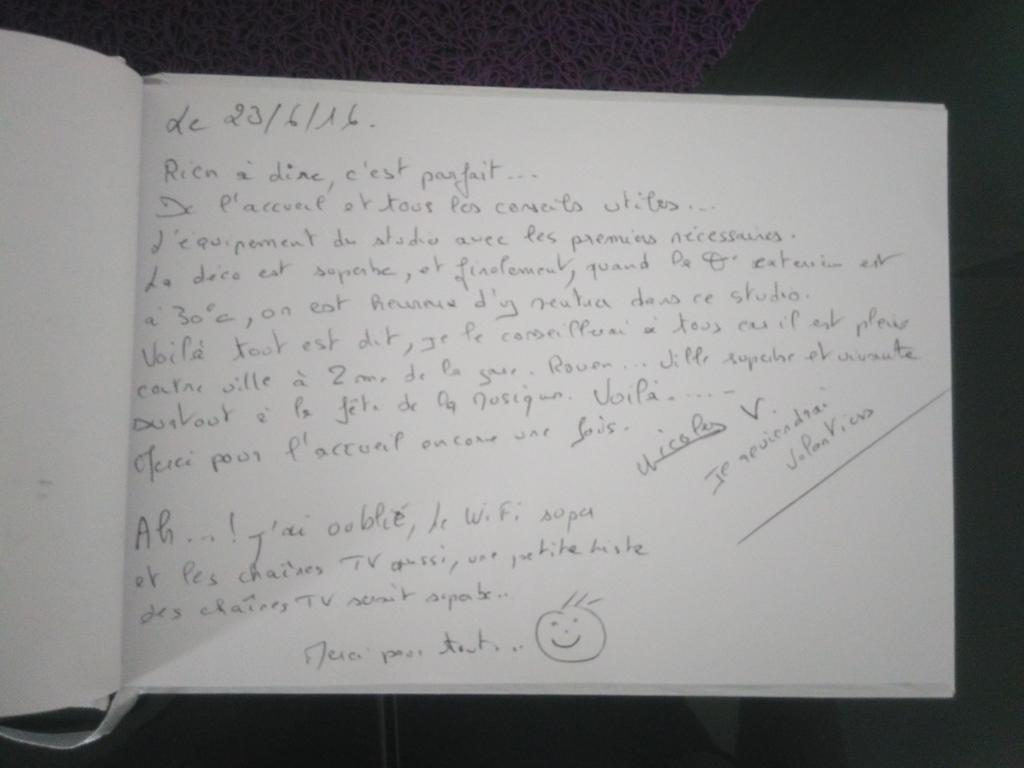 Le 23/6/16.
Rien à dire, c'est parfait...
De l'accueil et tous les conseils utiles...
L'équipement du studio avec les premiers nécessaires.
La déco est superbe, et finalement, quand la t° exterieur est
à 30°c, on est heureux d'y rentrer dans ce studio.
Voilà tout est dit, je le conseillerai à tous car il est plein
centre ville à 2 mn de la gare. Rouen... ville superbe et vivante
surtout à la fête de la musique. Voilà.....
Merci pour l'accueil encore une fois.
Nicolas V.
Je reviendrai
volontiers
Ah...! j'ai oublié, le WiFi super
et les chaînes TV aussi, une petite liste
des chaînes TV serait superbe..
Merci pour tout...